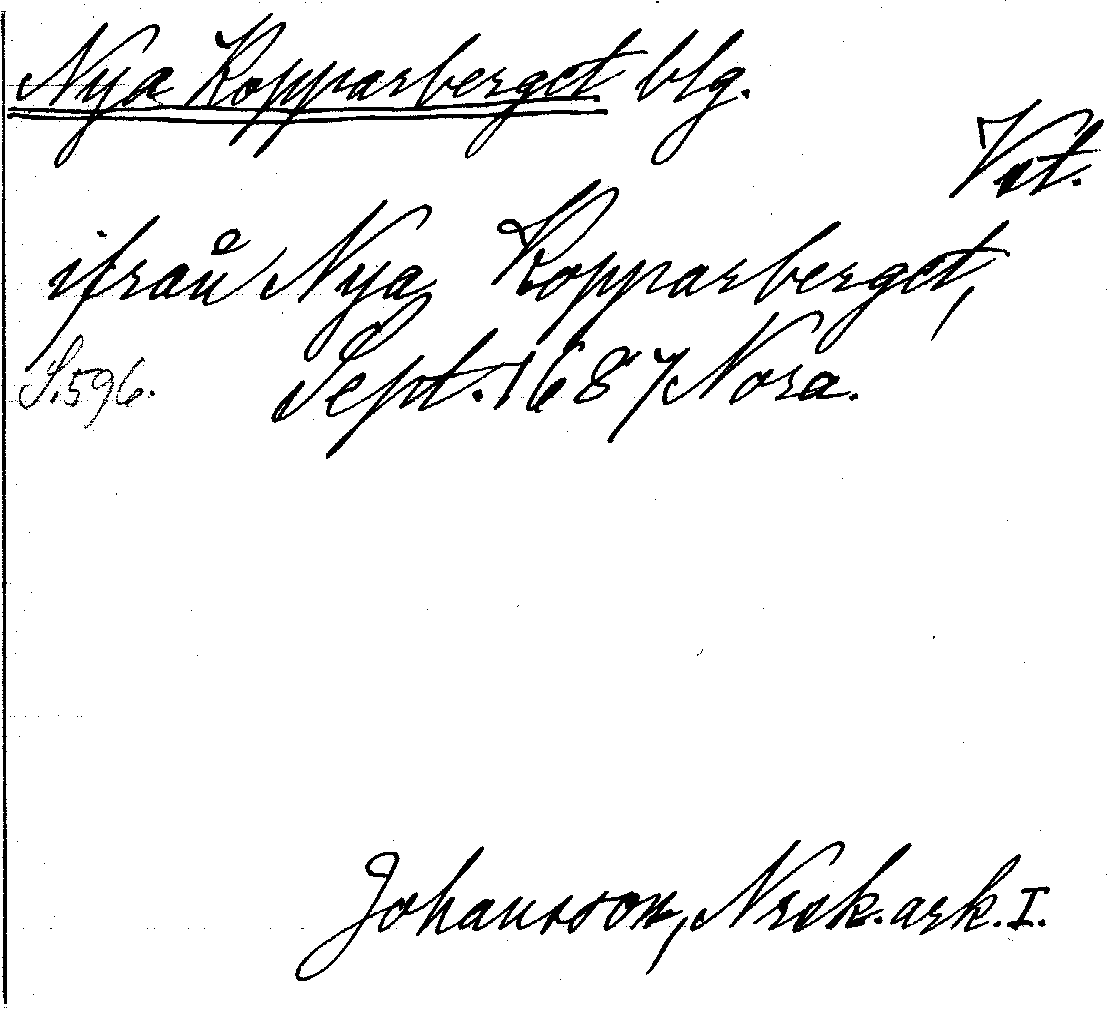 Nya Kopparberget blg.
Vst.
ifrån Nya Kopparberget,
S. 596. Sept. 1687 Nora.
Johansson, Nrsk. ark. I.